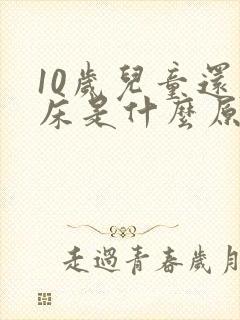 10歲兒童還
床是什麼原
走過青春歲月